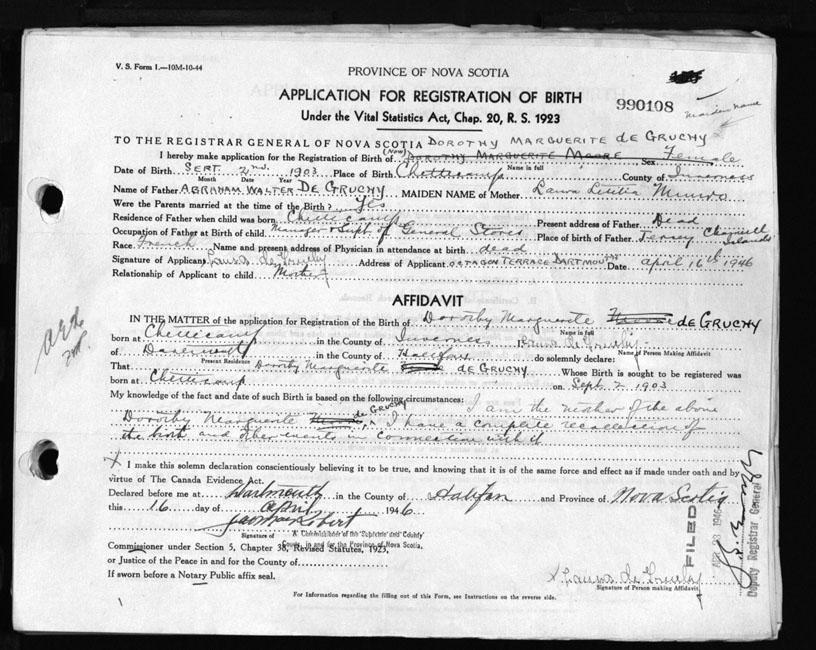 V. S. Form 1.—10M-10-44
PROVINCE OF NOVA SCOTIA
APPLICATION FOR REGISTRATION OF BIRTH
990108
Maiden name
Under the Vital Statistics Act, Chap. 20, R. S. 1923
TO THE REGISTRAR GENERAL OF NOVA SCOTIA DOROTHY MARGUERITE de GRUCHY
I hereby make application for the Registration of Birth of (Now) DOROTHY MARGUERITE MOORE Sex Female
Name in full
Date of Birth SEPT. 2nd 1903 Place of Birth Chetticamp County of Inverness
Month Date Year
Name of Father ABRAHAM WALTER DE GRUCHY MAIDEN NAME of Mother Laura Letitia Munro
Were the Parents married at the time of the Birth? Yes
Residence of Father when child was born Chetticamp Present address of Father Dead
Occupation of Father at Birth of child Manager & Supt of General Stores Place of birth of Father Jersey Channell Islands
Race French Name and present address of Physician in attendance at birth dead
Signature of Applicant Laura de Gruchy Address of Applicant OCTAGON TERRACE DARTMOUTH Date April 16th 1946
Relationship of Applicant to child Mother
AFFIDAVIT
IN THE MATTER of the application for Registration of the Birth of Dorothy Marguerite de GRUCHY
Name in full
born at Chetticamp in the County of Inverness I Laura de Gruchy
Name of Person Making Affidavit
of Dartmouth in the County of Halifax do solemnly declare:
Present Residence
That Dorothy Marguerite de GRUCHY Whose Birth is sought to be registered was
born at Chetticamp on Sept 2 1903
My knowledge of the fact and date of such Birth is based on the following circumstances: I am the mother of the above
Dorothy Marguerite de GRUCHY, I have a complete recollection of
the birth and other events in connection with it
X I make this solemn declaration conscientiously believing it to be true, and knowing that it is of the same force and effect as if made under oath and by
virtue of The Canada Evidence Act.
Declared before me at Dartmouth in the County of Halifax and Province of Nova Scotia
this 16 day of April 1946
Signature of A Commissioner of the Supreme and County
Courts, in and for the Province of Nova Scotia.
Commissioner under Section 5, Chapter 38, Revised Statutes, 1923,
or Justice of the Peace in and for the County of
If sworn before a Notary Public affix seal.
X Laura de Gruchy
Signature of Person making Affidavit
For Information regarding the filling out of this Form, see Instructions on the reverse side.
FILED
1946
Deputy Registrar General